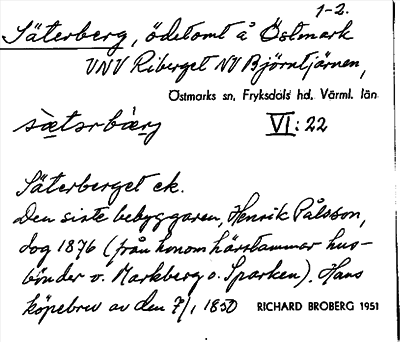 1-2.
Säterberg, ödetomt å Östmark
VNV Riberget NV Björntjärnen,
Östmarks sn, Fryksdals hd, Värml. län
sätərbærj VI: 22
Säterberget ek.
Den siste bebyggaren, Henrik Pålsson,
dog 1876 (från honom härstammar hus-
bönder v. Markberg o. Sparken). Hans
köpebrev av den 7/1 1850 RICHARD BROBERG 1951